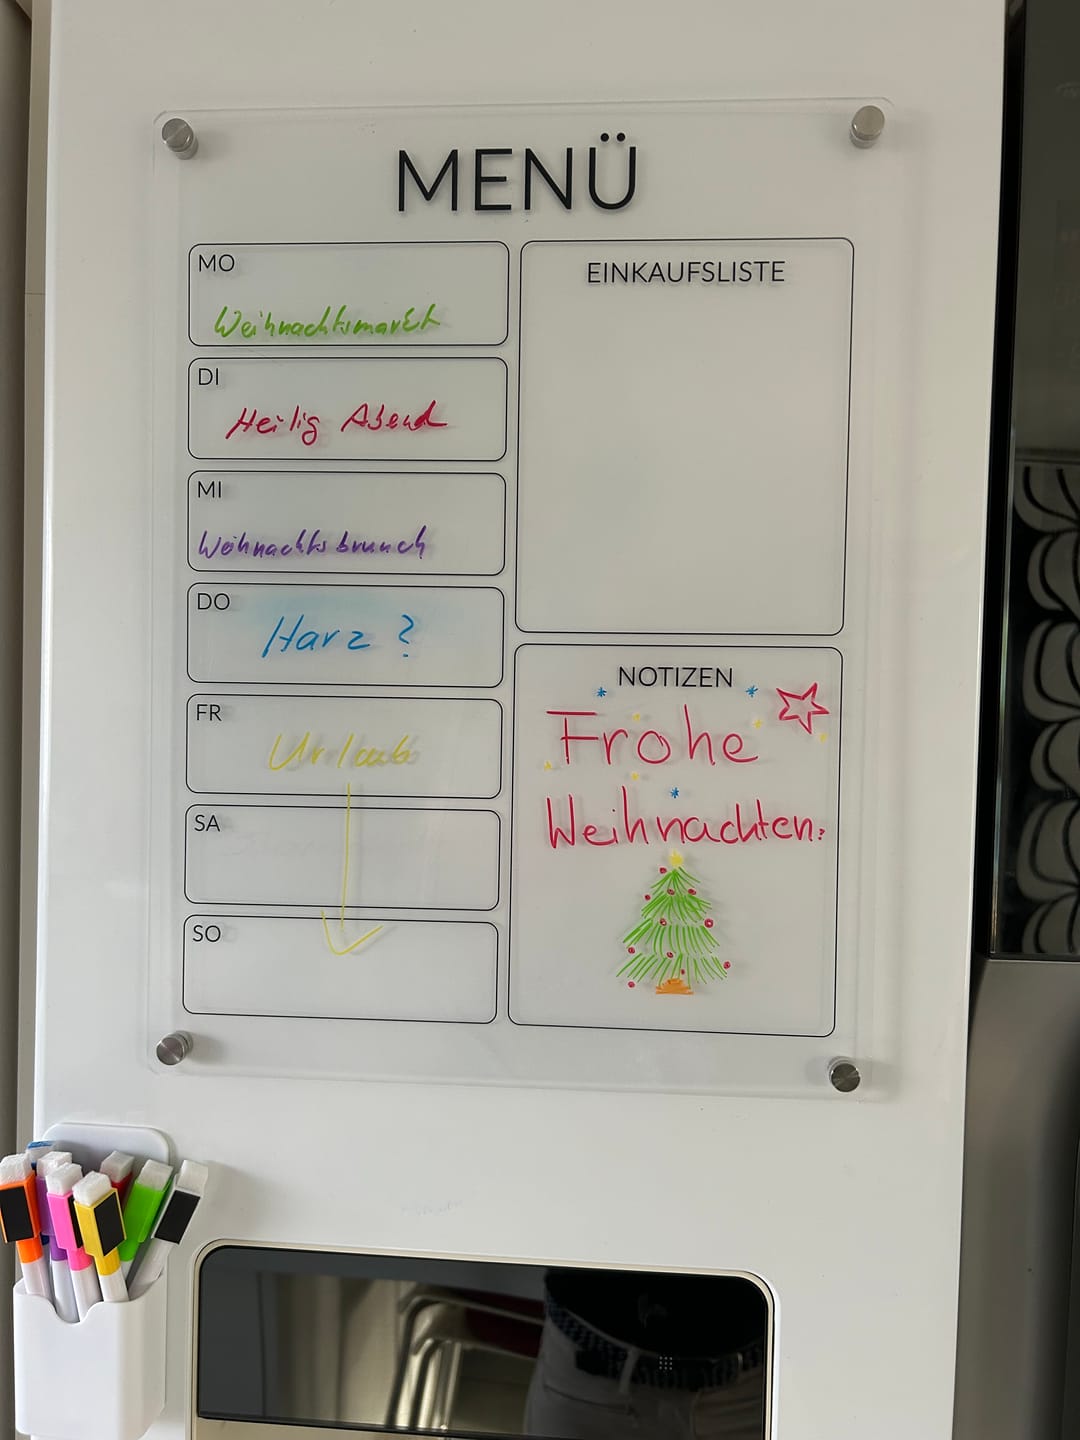 MENÜ
MO
Weihnachtsmarkt
DI
Heilig Abend
MI
Weihnachtsbrunch
DO
Harz ?
FR
Urlaub
SA
SO
EINKAUFSLISTE
NOTIZEN
Frohe
Weihnachten